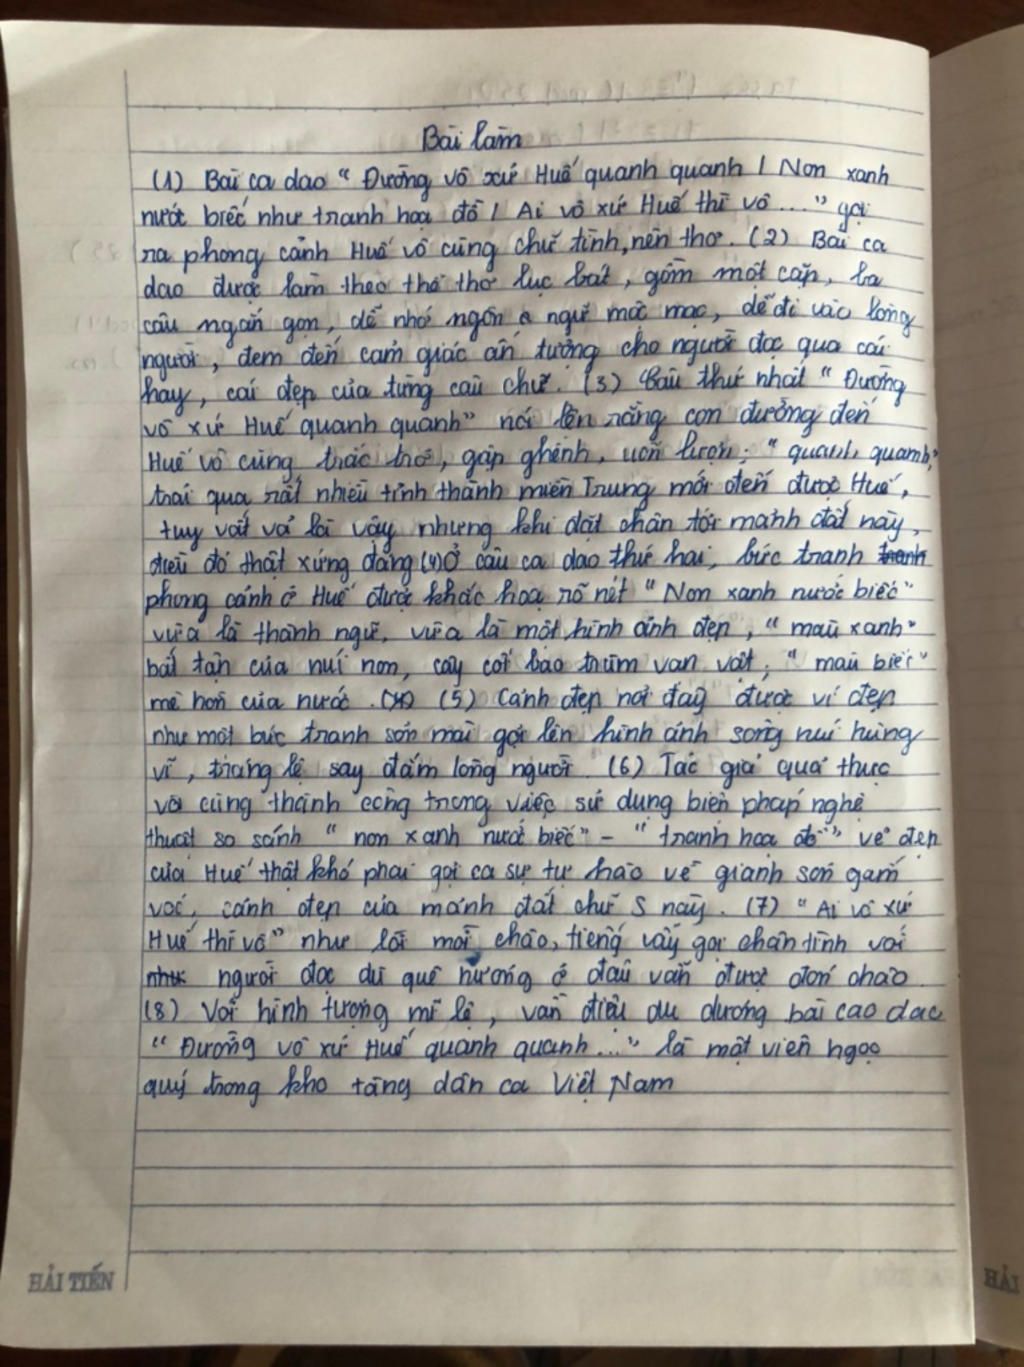 Bài làm
(1) Bài ca dao “ Đường vô xứ Huế quanh quanh / Non xanh
nước biếc như tranh hoạ đồ / Ai vô xứ Huế thì vô ... ” gợi
ra phong cảnh Huế vô cùng chữ tình, nên thơ. (2) Bài ca
dao được làm theo thể thơ lục bát, gồm một cặp, ba
câu ngắn gọn, dễ nhớ ngôn ngữ mộc mạc, dễ đi vào lòng
người, đem đến cảm giác ấn tượng cho người đọc qua cái
hay, cái đẹp của từng câu chữ. (3) Câu thứ nhất “ Đường
vô xứ Huế quanh quanh” nói lên rằng con đường đến
Huế vô cùng trắc trở, gập ghềnh, uốn lượn; “ quanh quanh”,
trải qua rất nhiều tỉnh thành miền Trung mới đến được Huế,
tuy vất vả là vậy nhưng khi đặt chân tới mảnh đất này,
điều đó thật xứng đáng (4) Ở câu ca dao thứ hai, bức tranh tranh
phong cảnh ở Huế được khắc hoạ rõ nét “ Non xanh nước biếc”
vừa là thành ngữ, vừa là một hình ảnh đẹp, “ màu xanh”
bất tận của núi non, cây cối bao trùm vạn vật; “ màu biếc”
mê hồn của nước. (5) Cảnh đẹp nơi đây được ví đẹp
như một bức tranh sơn mài gợi lên hình ảnh sông núi hùng
vĩ, tráng lệ say đắm lòng người. (6) Tác giả quả thực
vô cùng thành công trong việc sử dụng biện pháp nghệ
thuật so sánh “ non xanh nước biếc” – “ tranh hoạ đồ” vẻ đẹp
của Huế thật khó phai gợi ca sự tự hào về gianh sơn gấm
vóc, cảnh đẹp của mảnh đất chữ S này. (7) “ Ai vô xứ
Huế thì vô” như lời mời chào, tiếng vẫy gọi chân tình với
như người đọc dù quê hương ở đâu vẫn được đón chào.
(8) Với hình tượng mĩ lệ, vần điệu du dương bài cao dao
“ Đường vô xứ Huế quanh quanh...” là một viên ngọc
quý trong kho tàng dân ca Việt Nam
HẢI TIẾN
HẢI